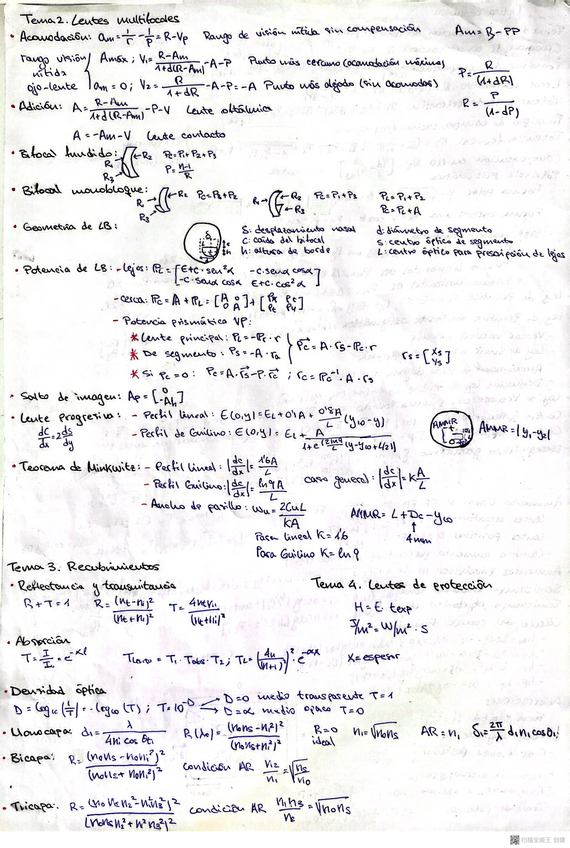 Tema 2. Lentes multifocales
• Acomodación: am = 1/r - 1/p = R-Vp Rango de visión nítida sin compensación Am = R-PP
rango visión nítida ojo-lente
Amáx; V1 = R-Am/1+d(R-Am) - A-P Punto más cercano (acomodación máxima)
am = 0; V2 = R/1+dR - A-P = -A Punto más alejado (sin acomodar)
P = R/(1+dR)
R = P/(1-dP)
• Adición: A = R-Am/1+d(R-Am) - P-V Lente oftálmica
A = -Am-V Lente contacto
• Bifocal fundido: R1 R3 R2 Pc = P1+P2+P3
P = n-1/R
• Bifocal monobloque: R1 R3 R2 Pc = P3+P2 R1 R2 R3 Pc = P1+P3 PL = P1+P2
Pc = PL+A
• Geometría de LB: S: desplazamiento nasal d: diámetro de segmento
c: caída del bifocal s: centro óptico de segmento
h: altura de borde L: centro óptico para prescripción de lejos
• Potencia de LB: - lejos: PL = [E+C·sen²α -C·senα cosα
-C·senα cosα E+C·cos²α]
- cerca: Pc = A+PL = [A 0
0 A] + [Px Pt
Pt Py]
- Potencia prismática VP:
* Lente principal: PL = -PL·r
* De segmento: Ps = -A·rs
Pc = A·rs-Pc·r rs = [xs
ys]
* Si Pc = 0: Pc = A·rs-P·rc; rc = Pc⁻¹·A·rs
• Salto de imagen: Ap = [0
-Ah]
• Lente progresiva: - Perfil lineal: E(0,y) = EL+0'1A+0'8A/L (y10-y)
dC/dx = 2 dS/dy
- Perfil de Guilino: E(0,y) = EL + A/1+e^(2ln9/L (y-y10+L/2))
AMMR AMMR = |y1-y2|
• Teorema de Minkwitz: - Perfil lineal: |dc/dx| = 1'6A/L caso general: |dc/dx| = KA/L
- Perfil Guilino: |dc/dx| = ln9A/L
- Ancho de pasillo: wu = 2CuL/KA AMMR = L+Dc-y10
↑
4mm
Para lineal K = 1'6
Para Guilino K = ln 9
Tema 3. Recubrimientos
• Reflectancia y transmitancia
R+T = 1 R = (nt-ni)²/(nt+ni)² T = 4ntni/(nt+ni)²
Tema 4. Lentes de protección
H = E·texp
J/m² = W/m²·S
• Absorción
T = I/I0 = e^-αl Tluno = T1·Tabs·T2; TL = (4n/(n+1)²)²·e^-αx X = espesor
• Densidad óptica
D = log10(1/T) = -log10(T); T = 10^-D D=0 medio transparente T=1
D=∞ medio opaco T=0
• Monocapa: d1 = λ/4n1 cosθ1 R(λ0) = (n0ns-n1²)²/(n0ns+n1²)² R=0 ideal n1 = √n0ns AR = n1 δ1 = 2π/λ d1 n1 cosθ1
• Bicapa: R = (n0n2²-nsn1²)²/(n0n2²+nsn1²)² condición AR n2/n1 = √ns/n0
• Tricapa: R = (n0nsn2²-n1²n3²)²/(n0nsn2²+n1²n3²)² condición AR n1n3/n2 = √n0ns
扫描全能王 创建